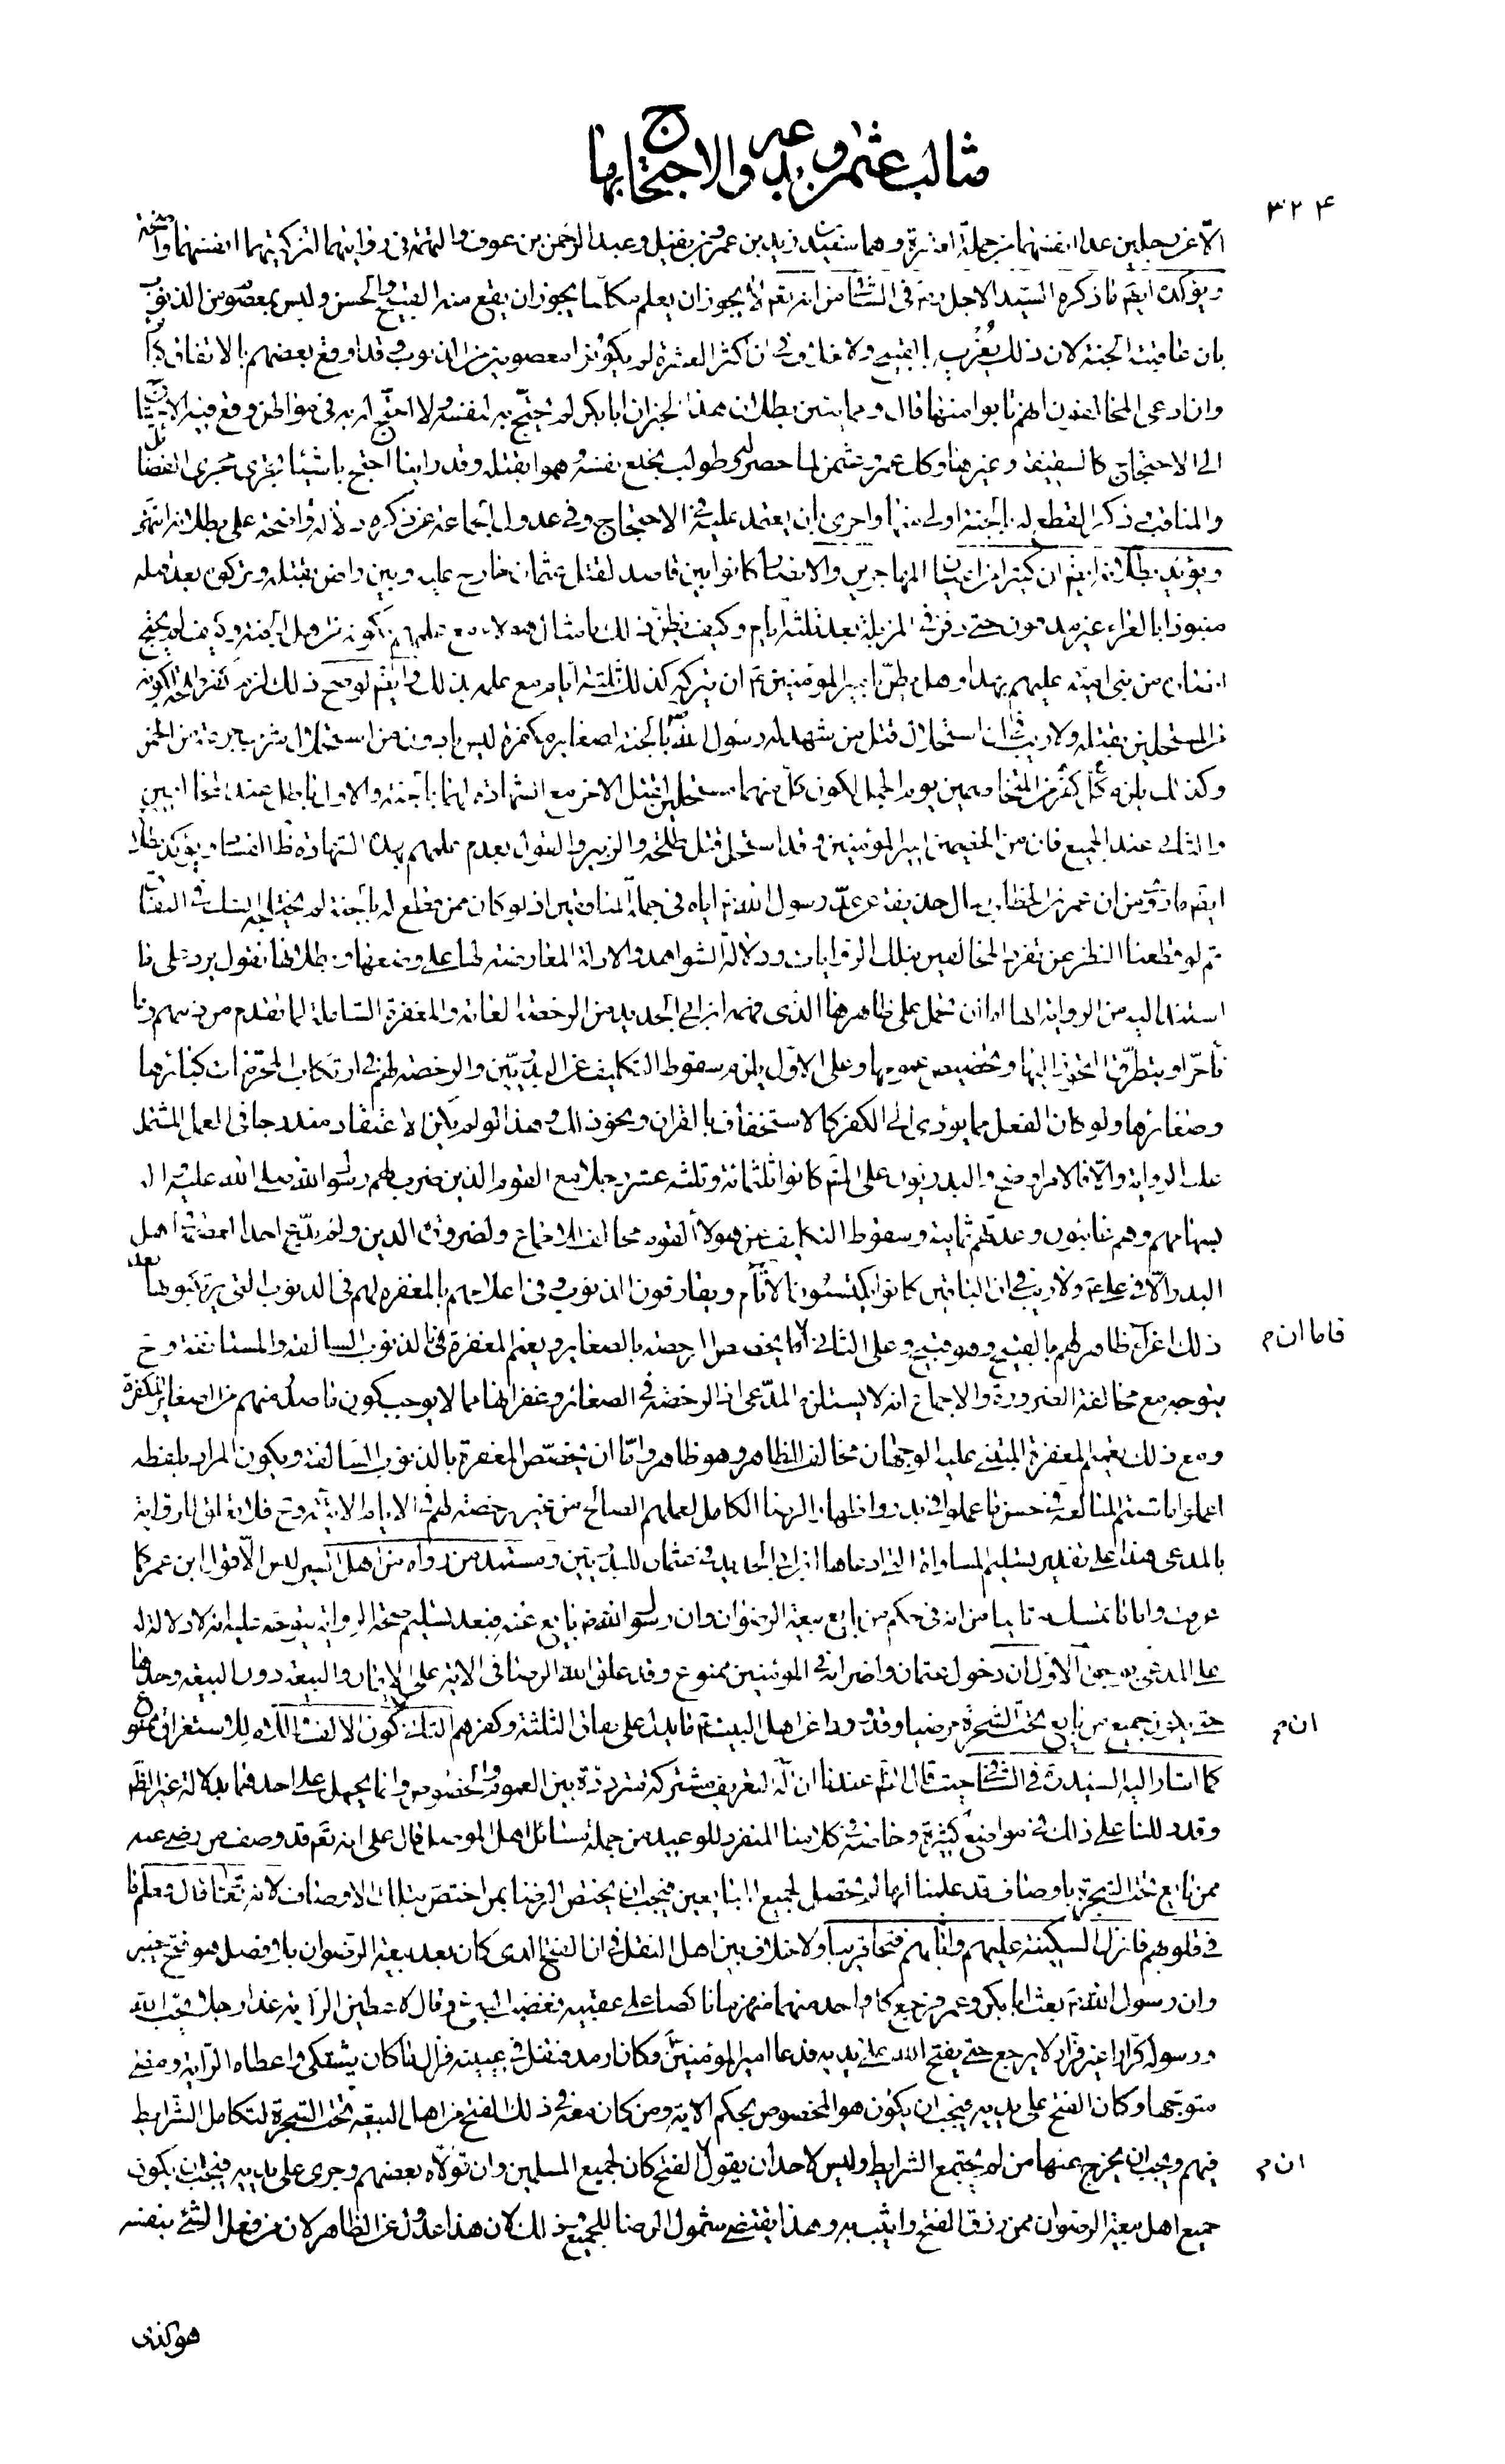 مثالب عثمن وبدعه والاحتجاج بها
۳۲۴
الّا عن رجلين عدا انفسهما من جملة العشرة وهما سعيد بن زيد بن عمرو بن نفيل وعبد الرحمن بن عوف والتهمة في روايتهما لتزكيتهما انفسهما واضحة
ويؤكده ايضا ما ذكره السيد الاجل ره في الشافي من انه تعالى لا يجوز ان يعلم مكلفا يجوز ان يقع منه القبيح والحسن وليس بمعصوم من الذنوب
بان عاقبته الجنة لان ذلك يغريه بالقبيح ولا خلاف في ان اكثر العشرة لم يكونوا معصومين من الذنوب وقد اوقع بعضهم بالاتفاق كبائر
وان ادعى المخالفون انهم تابوا منها قال ومما يبين بطلان هذا الخبر ان ابا بكر لم يحتج به لنفسه ولا احتج له به في مواطن وقع فيه الاحتياج
الى الاحتجاج كالسقيفة وغيرها وكذلك عمر وعثمن لما حصر وطولب بخلع نفسه وهموا بقتله وقد راينا احتج باشياء تجري مجرى الفضائل
والمناقب وذكر القطع له بالجنة اولى منها واحرى بان يعتمد عليه في الاحتجاج وفي عدول الجماعة عن ذكره دلالة واضحة على بطلانه انتهى
ويؤيد بطلانه ايضا ان كثيرا من اعيان المهاجرين والانصار كانوا بين قاصد لقتل عثمان خارج عليه وبين راض بقتله وتركوه بعد قتله
منبوذا بالعراء غير مدفون حتى دفن في المزبلة بعد ثلثة ايام وكيف يظن ذلك بامثال هؤلاء مع علمهم بكونه من اهل الجنة وكيف لم يحتج
انصاره من بني امية عليهم بهذا وهل يظن بامير المؤمنين ع ان يتركه كذلك ثلثة ايام مع علمه بذلك وايضا لو صح ذلك لزم كفر طلحة بكونه
من المستحلين بقتله ولا ريب في ان استحلال قتل من شهد له رسول الله ص بالجنة لصغايره مكفرة ليس بادون من استحلال شرب جرعة من الخمر
وكذلك يلزم كفر كل من المتخاصمين يوم الجمل لكون كل منهما مستحلين لقتل الاخر مع الشهادة لهما بالجنة والاول باطل عند المخالفين
والثاني عند الجميع فان من الخصمين امير المؤمنين ع وقد استحل قتل طلحة والزبير والقول بعدم علمهم بهذه الشهادة ظاهر الفساد ويؤكد بطلانه
ايضا ما روي من ان عمر بن الخطاب سال حذيفة عن عد رسول الله ص اياه في جملة المنافقين اذ لو كان ممن قطع له بالجنة لم يختلجه الشك في النفاق
ثم لو قطعنا النظر عن تفرد المخالفين بتلك الروايات ودلالة الشواهد والادلة المعارضة لها على وضعها وبطلانها نقول يرد على ما
استند اليه من الرواية انها اما ان تحمل على ظاهرها الذي فهمه ابن ابي الحديد من الرخصة العامة والمغفرة الشاملة لما تقدم من ذنبهم وما
تاخر او يتطرق التجوز اليها وتخصيص عمومها وعلى الاول يلزم سقوط التكليف عن البدريين والرخصة لهم في ارتكاب المحرمات كبائرها
وصغائرها ولو كان الفعل مما يؤدي الى الكفر كالاستخفاف بالقران ونحو ذلك وهذا لو لم يكن الاعتقاد مندرجا في العمل المشتمل
عليه الرواية والا فالامر اوضح والبدريون على المشهور كانوا ثلثمائة وثلثة عشر رجلا مع القوم الذين ضرب لهم رسول الله صلى الله عليه واله
بسهامهم وهم غائبون وعدتهم ثمانية وسقوط التكليف عن هؤلاء القوم مخالف للاجماع ولضرورة الدين ولم يدع احد العصمة في اهل
البدر الا في علي ع ولا ريب في ان الباقين كانوا يكتسبون الاثام ويقارفون الذنوب وفي اعلامهم بالمغفرة لهم في الذنوب التي يرتكبونها بعد
ذلك اغراء ظاهر لهم بالقبيح وهو قبيح وعلى الثاني فاما ان يخصص الرخصة بالصغاير ويعمم المغفرة في الذنوب السالفة والمستانفة وح
يتوجه مع مخالفة الضرورة والاجماع انه لا يستلزم المدعى اذ الرخصة في الصغائر وغفرانها مما لا يوجب كون ما صدر منهم من الصغاير المكفرة
ومع ذلك تعميم المغفرة المبتني عليه الوجهان مخالف للظاهر وهو ظاهر واما ان يخصص المغفرة بالذنوب السالفة ويكون المراد بلفظة
اعملوا ما شئتم المبالغة في حسن ما عملوا في بدر واظهار الرضا الكامل لعملهم الصالح من غير رخصة لهم في الايام الاتية وح فلا تعلق للرواية
بالمدعى هذا على تقدير تسليم المساواة التي ادعاها ابن ابي الحديد في عثمان للبدريين ومستند من رواه من اهل السير ليس الا قول ابن عمر كما
عرفت واما ما تمسك به ثانيا من انه في حكم من بايع بيعة الرضوان وان رسول الله ص بايع عنه فبعد تسليم صحة الرواية يتوجه عليه انه لا دلالة له
على المدعى بوجوه الاول ان دخول عثمان واضرابه في المؤمنين ممنوع وقد علق الله الرضا في الاية على الايمان والبيعة دون البيعة وحدها
حتى يكون جميع من بايع تحت الشجرة مرضيا وقد ورد عن اهل البيت ع ما يدل على نفاق الثلثة وكفرهم الثاني ان كون الالف واللام للاستغراق ممنوع
كما اشار اليه السيد ره في الشافي حيث قال الظاهر عندنا ان آلة التعريف مشتركة مترددة بين العموم والخصوص وانما يحمل على احدهما بدلالة غير الظاهر
وقد دللنا على ذلك في مواضع كثيرة وخاصة في كلامنا المنفرد للوعيد من جملة مسائل اهل الموصل قال على انه تعالى قد وصف من رضي عنه
ممن بايع تحت الشجرة باوصاف قد علمنا انها لم تحصل لجميع المبايعين فيجب ان يختص الرضا بمن اختص بتلك الاوصاف لانه تعالى قال فعلم ما
في قلوبهم فانزل السكينة عليهم واثابهم فتحا قريبا ولا خلاف بين اهل النقل في ان الفتح الذي كان بعد بيعة الرضوان بلا فصل هو فتح خيبر
وان رسول الله ص بعث ابا بكر وعمر فرجع كل واحد منهما منهزما ناكصا على عقبيه فغضب النبي ص وقال لاعطين الراية غدا رجلا يحب الله
ورسوله كرارا غير فرار لا يرجع حتى يفتح الله على يديه فدعا امير المؤمنين ع وكان ارمد فتفل في عينيه فزال ما كان يشتكي واعطاه الراية ومضى
متوجها وكان الفتح على يديه فيجب ان يكون هو المخصوص بحكم الاية ومن كان معه في ذلك الفتح من اهل البيعة تحت الشجرة لتكامل الشرايط
فيهم ويجب ان يخرج عنها من لم يجتمع الشرايط وليس لاحد ان يقول ان الفتح كان لجميع المسلمين وان تولاه بعضهم وجرى على يديه فيجب ان يكون
جميع اهل بيعة الرضوان ممن رزق الفتح واثيب به وهذا يقتضي شمول الرضا للجميع وذلك لان هذا عدول عن الظاهر لان من فعل الشيء بنفسه
فاما ان م
ان م
ان م
هو الذي